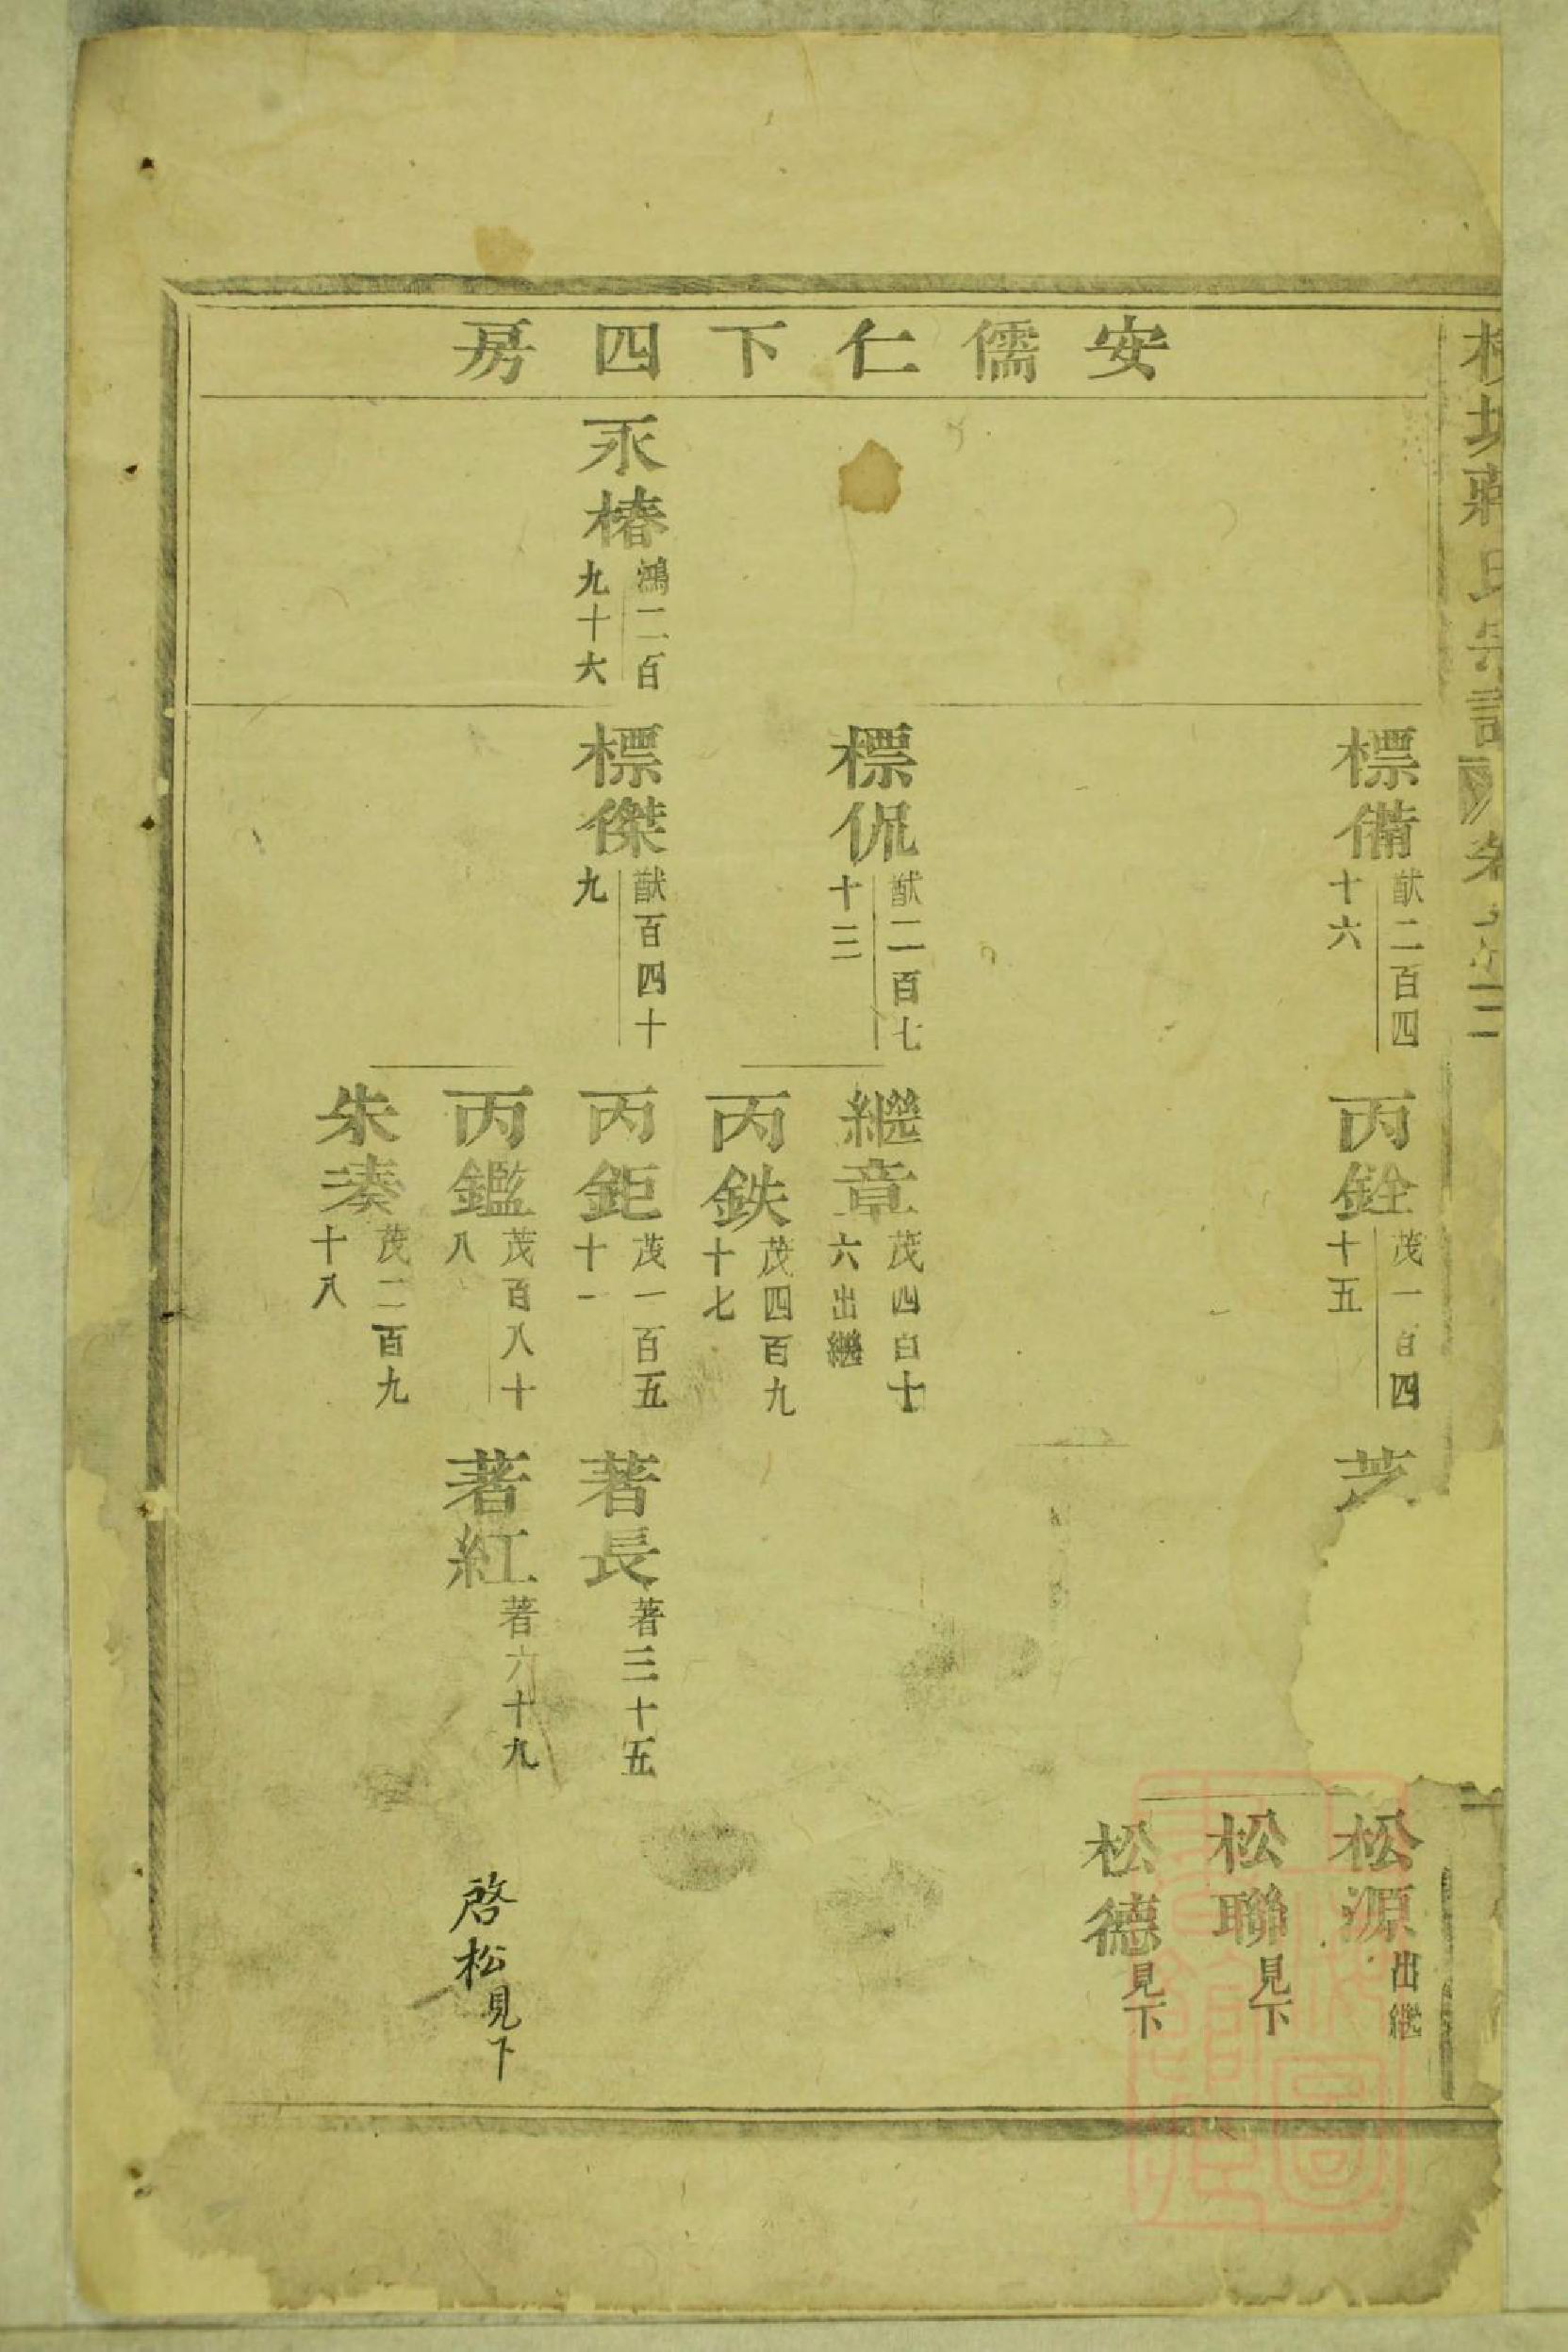 蔣氏宗譜
安儒仁下四房
標備 猷二百四十六
丙銓 茂一百四十五
松源 出繼
松聯 見下
松德 見下
標侃 猷二百七十三
繼章 茂四百十六出繼
丙鉄 茂四百九十七
永椿 鴻二百九十六
標傑 猷百四十九
丙鉅 茂一百五十一
著長 著三十五
丙鑑 茂百八十八
著紅 著六十九
啓松見下
朱湊 茂二百九十八